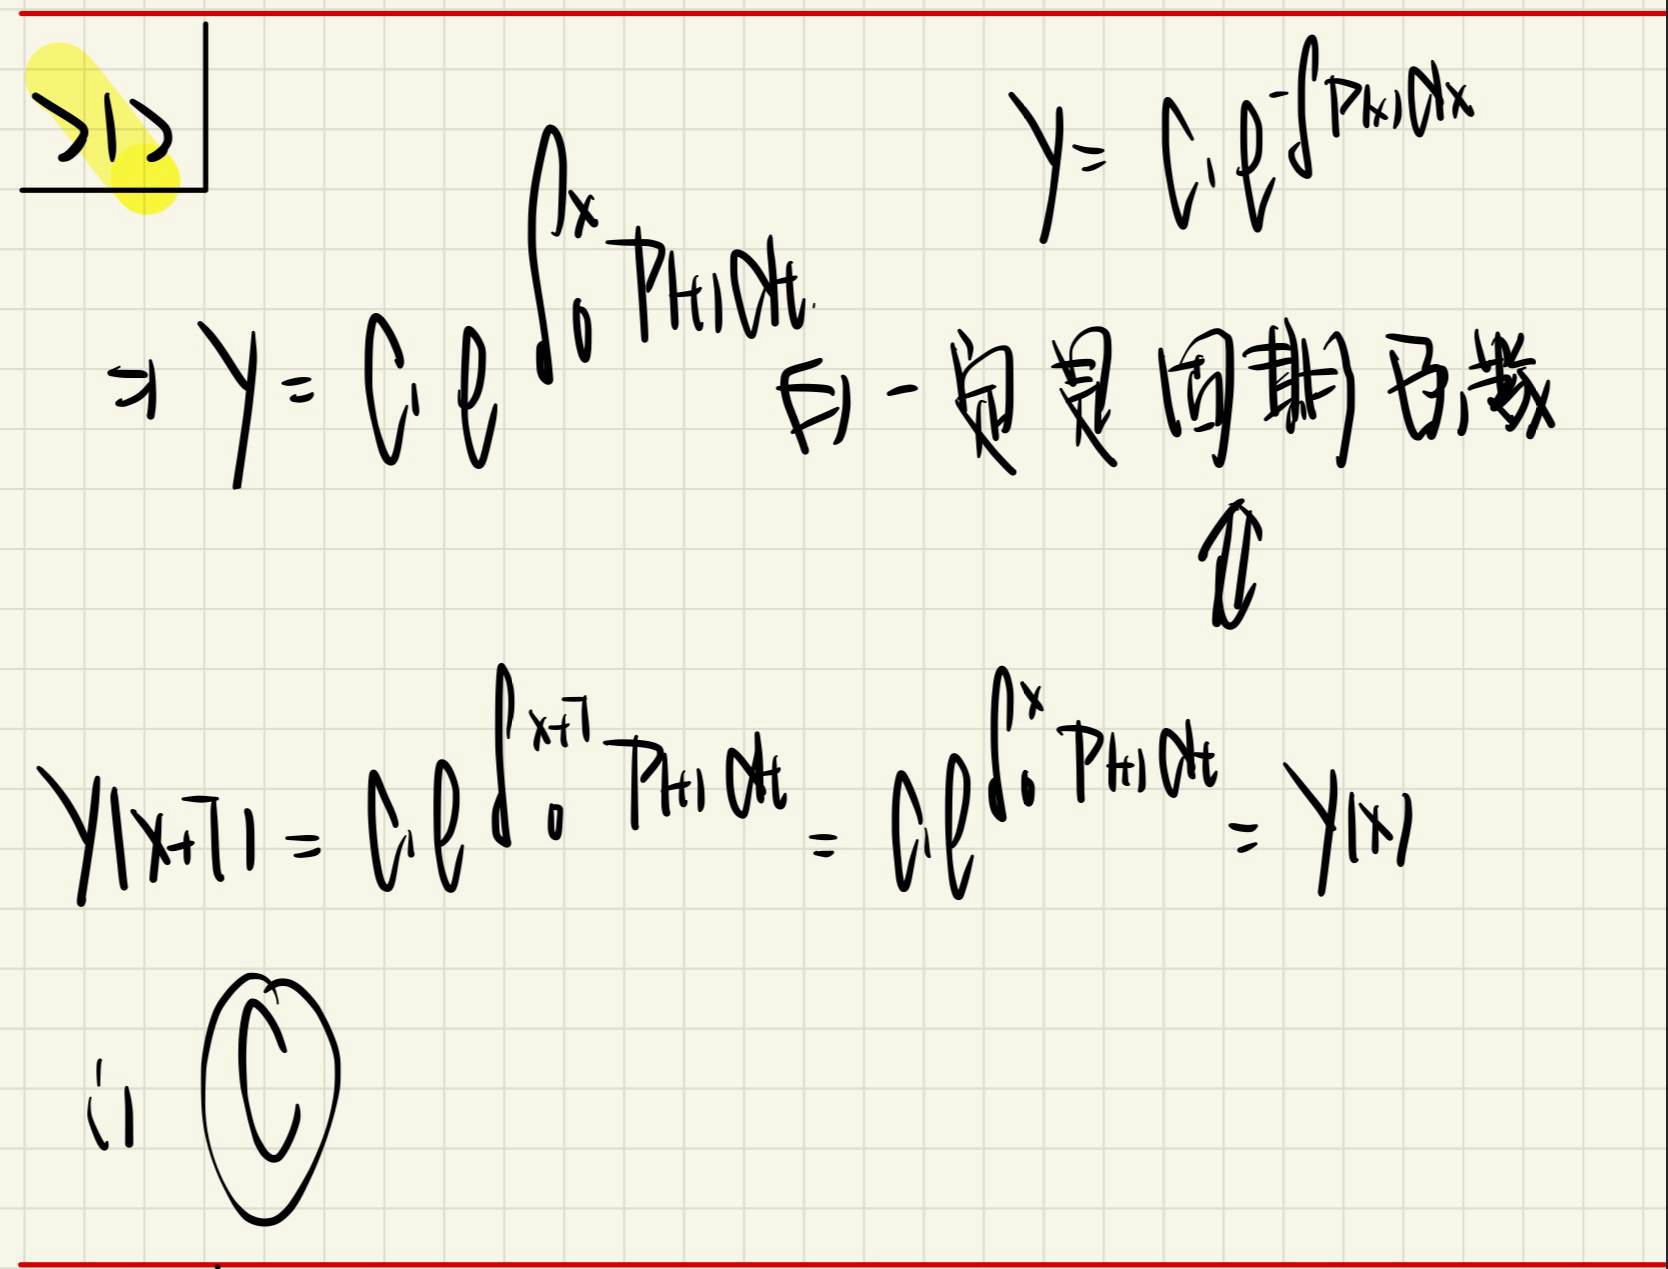 y = C₁e^{-∫P(x)dx}
⇒ y = C₁e^{∫₀ˣ P(t)dt} 有一个是周期函数
⇕
y(x+T) = C₁e^{∫₀^{x+T} P(t)dt} = C₁e^{∫₀ˣ P(t)dt} = y(x)
C